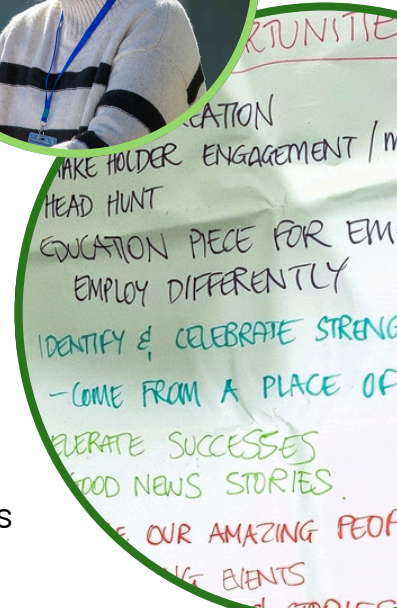 RTUNITIE
EATION
AKE HOLDER ENGAGEMENT / M
HEAD HUNT
EDUCATION PIECE FOR EM
EMPLOY DIFFERENTLY
IDENTIFY & CELEBRATE STRENG
- COME FROM A PLACE OF
ELERATE SUCCESSES
GOOD NEWS STORIES.
s
E OUR AMAZING PEOP
NG EVENTS